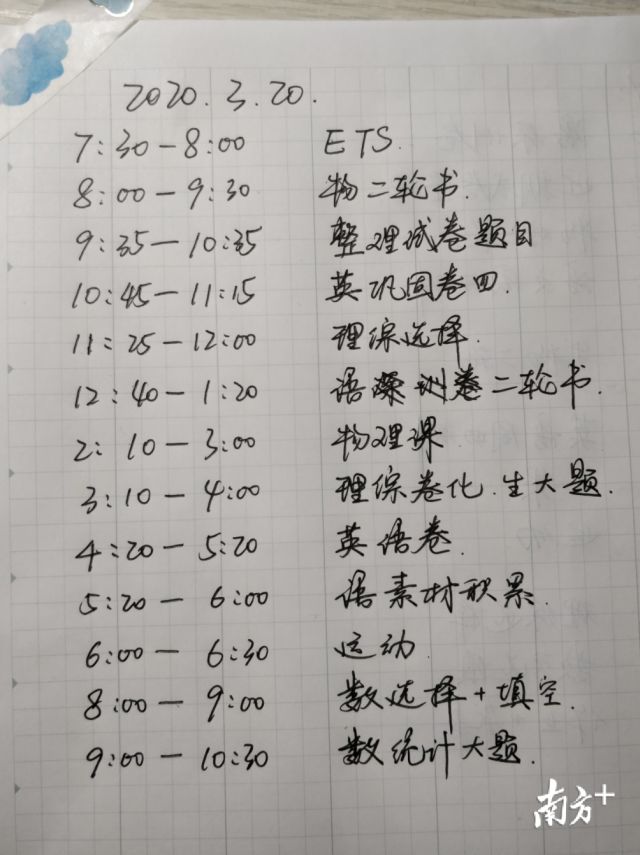 2020.3.20.
7:30-8:00 ETS.
8:00-9:30 物二轮书.
9:35-10:35 整理试卷题目
10:45-11:15 英巩固卷四.
11:25-12:00 理综选择.
12:40-1:20 语 二轮书.
2:10-3:00 物理课
3:10-4:00 理综卷化.生大题.
4:20-5:20 英语卷.
5:20-6:00 语素材积累.
6:00-6:30 运动.
8:00-9:00 数选择+填空.
9:00-10:30 数统计大题.
南方+